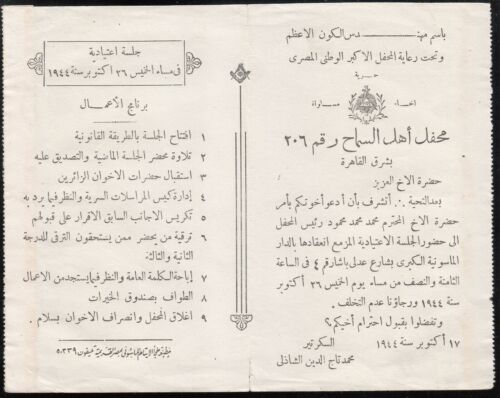 باسم مهندس الكون الاعظم
وتحت رعاية المحفل الاكبر الوطنى المصرى
حرية
اخاء
مساواة
محفل أهل السماح رقم ٢٠٦
بشرق القاهرة
حضرة الاخ العزيز
بعد التحية ∴ أتشرف بأن أدعو أخوتكم بأمر
حضرة الاخ المحترم محمد محمد محمود رئيس المحفل
الى حضور الجلسة الاعتيادية المزمع انعقادها بالدار
الماسونية الكبرى بشارع عدلى باشا رقم ٤ فى الساعة
الثامنة والنصف من مساء يوم الخميس ٢٦ أكتوبر
سنة ١٩٤٤ ورجاؤنا عدم التخلف.
وتفضلوا بقبول احترام أخيكم؟
١٧ أكتوبر سنة ١٩٤٤ السكرتير
محمد تاج الدين الشاذلى
جلسة اعتيادية
فى مساء الخميس ٢٦ أكتوبر سنة ١٩٤٤
برنامج الأعمال
١ افتتاح الجلسة بالطريقة القانونية
٢ تلاوة محضر الجلسة الماضية والتصديق عليه
٣ استقبال حضرات الاخوان الزائرين
٤ إدارة كيس المراسلات السرية والنظر فيما يرد به
٥ تكريس الاجانب السابق الاقرار على قبولهم
٦ ترقية من يحضر ممن يستحقون الترقى للدرجة
الثانية والثالثة
٧ إباحة الكلمة العامة والنظر فيما يستجد من الاعمال
٨ الطواف بصندوق الخيرات
٩ اغلاق المحفل وانصراف الاخوان بسلام.
تليفون ٥٠٣٣٩